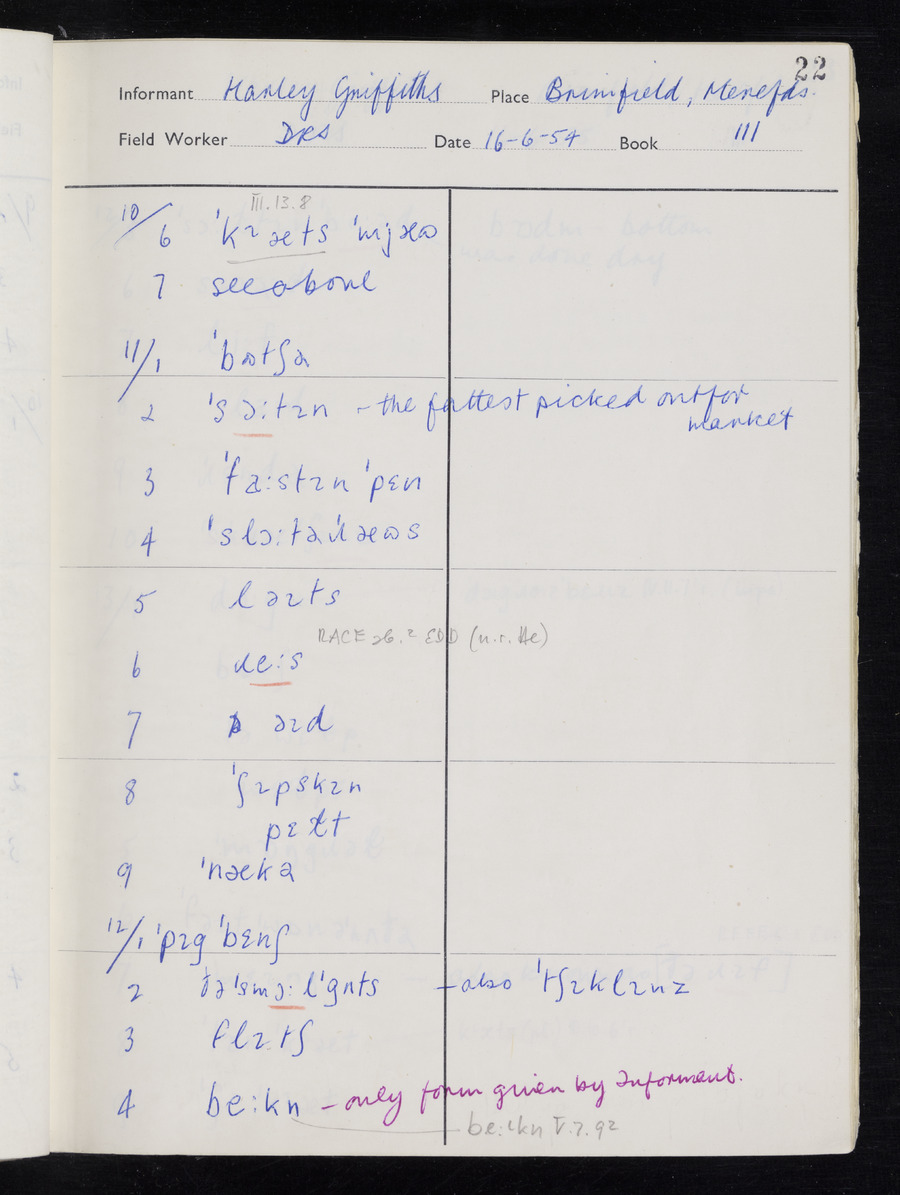 22
Informant Harley Griffiths Place Brimfield, Herefds.
Field Worker DRS Date 16-6-54 Book III
III.13.8
10/6 ˈkɪæts ˈmjæɷ
7 see above
11/1 ˈbɷtʃə
2 ˈsɔ:tɪn - the fattest picked out for
market
3 ˈfa:stɪn ˈpɛn
4 ˈslɔ:təɹˈæɷs
5 ləɪts
RACE sb.² EDD (n.r. He)
6 ɹe:s
7 əɪd
8 ˈʃɪpskɪn
pɛɫt
9 ˈnækə
12/1 ˈpɪg ˈbɛnʃ
2 ðə ˈsmɔ:l ˈgɷts - also ˈtʃɪklɪnz
3 flɪtʃ
4 be:kn - only form given by Informant.
be:ɪkn V.7.9a